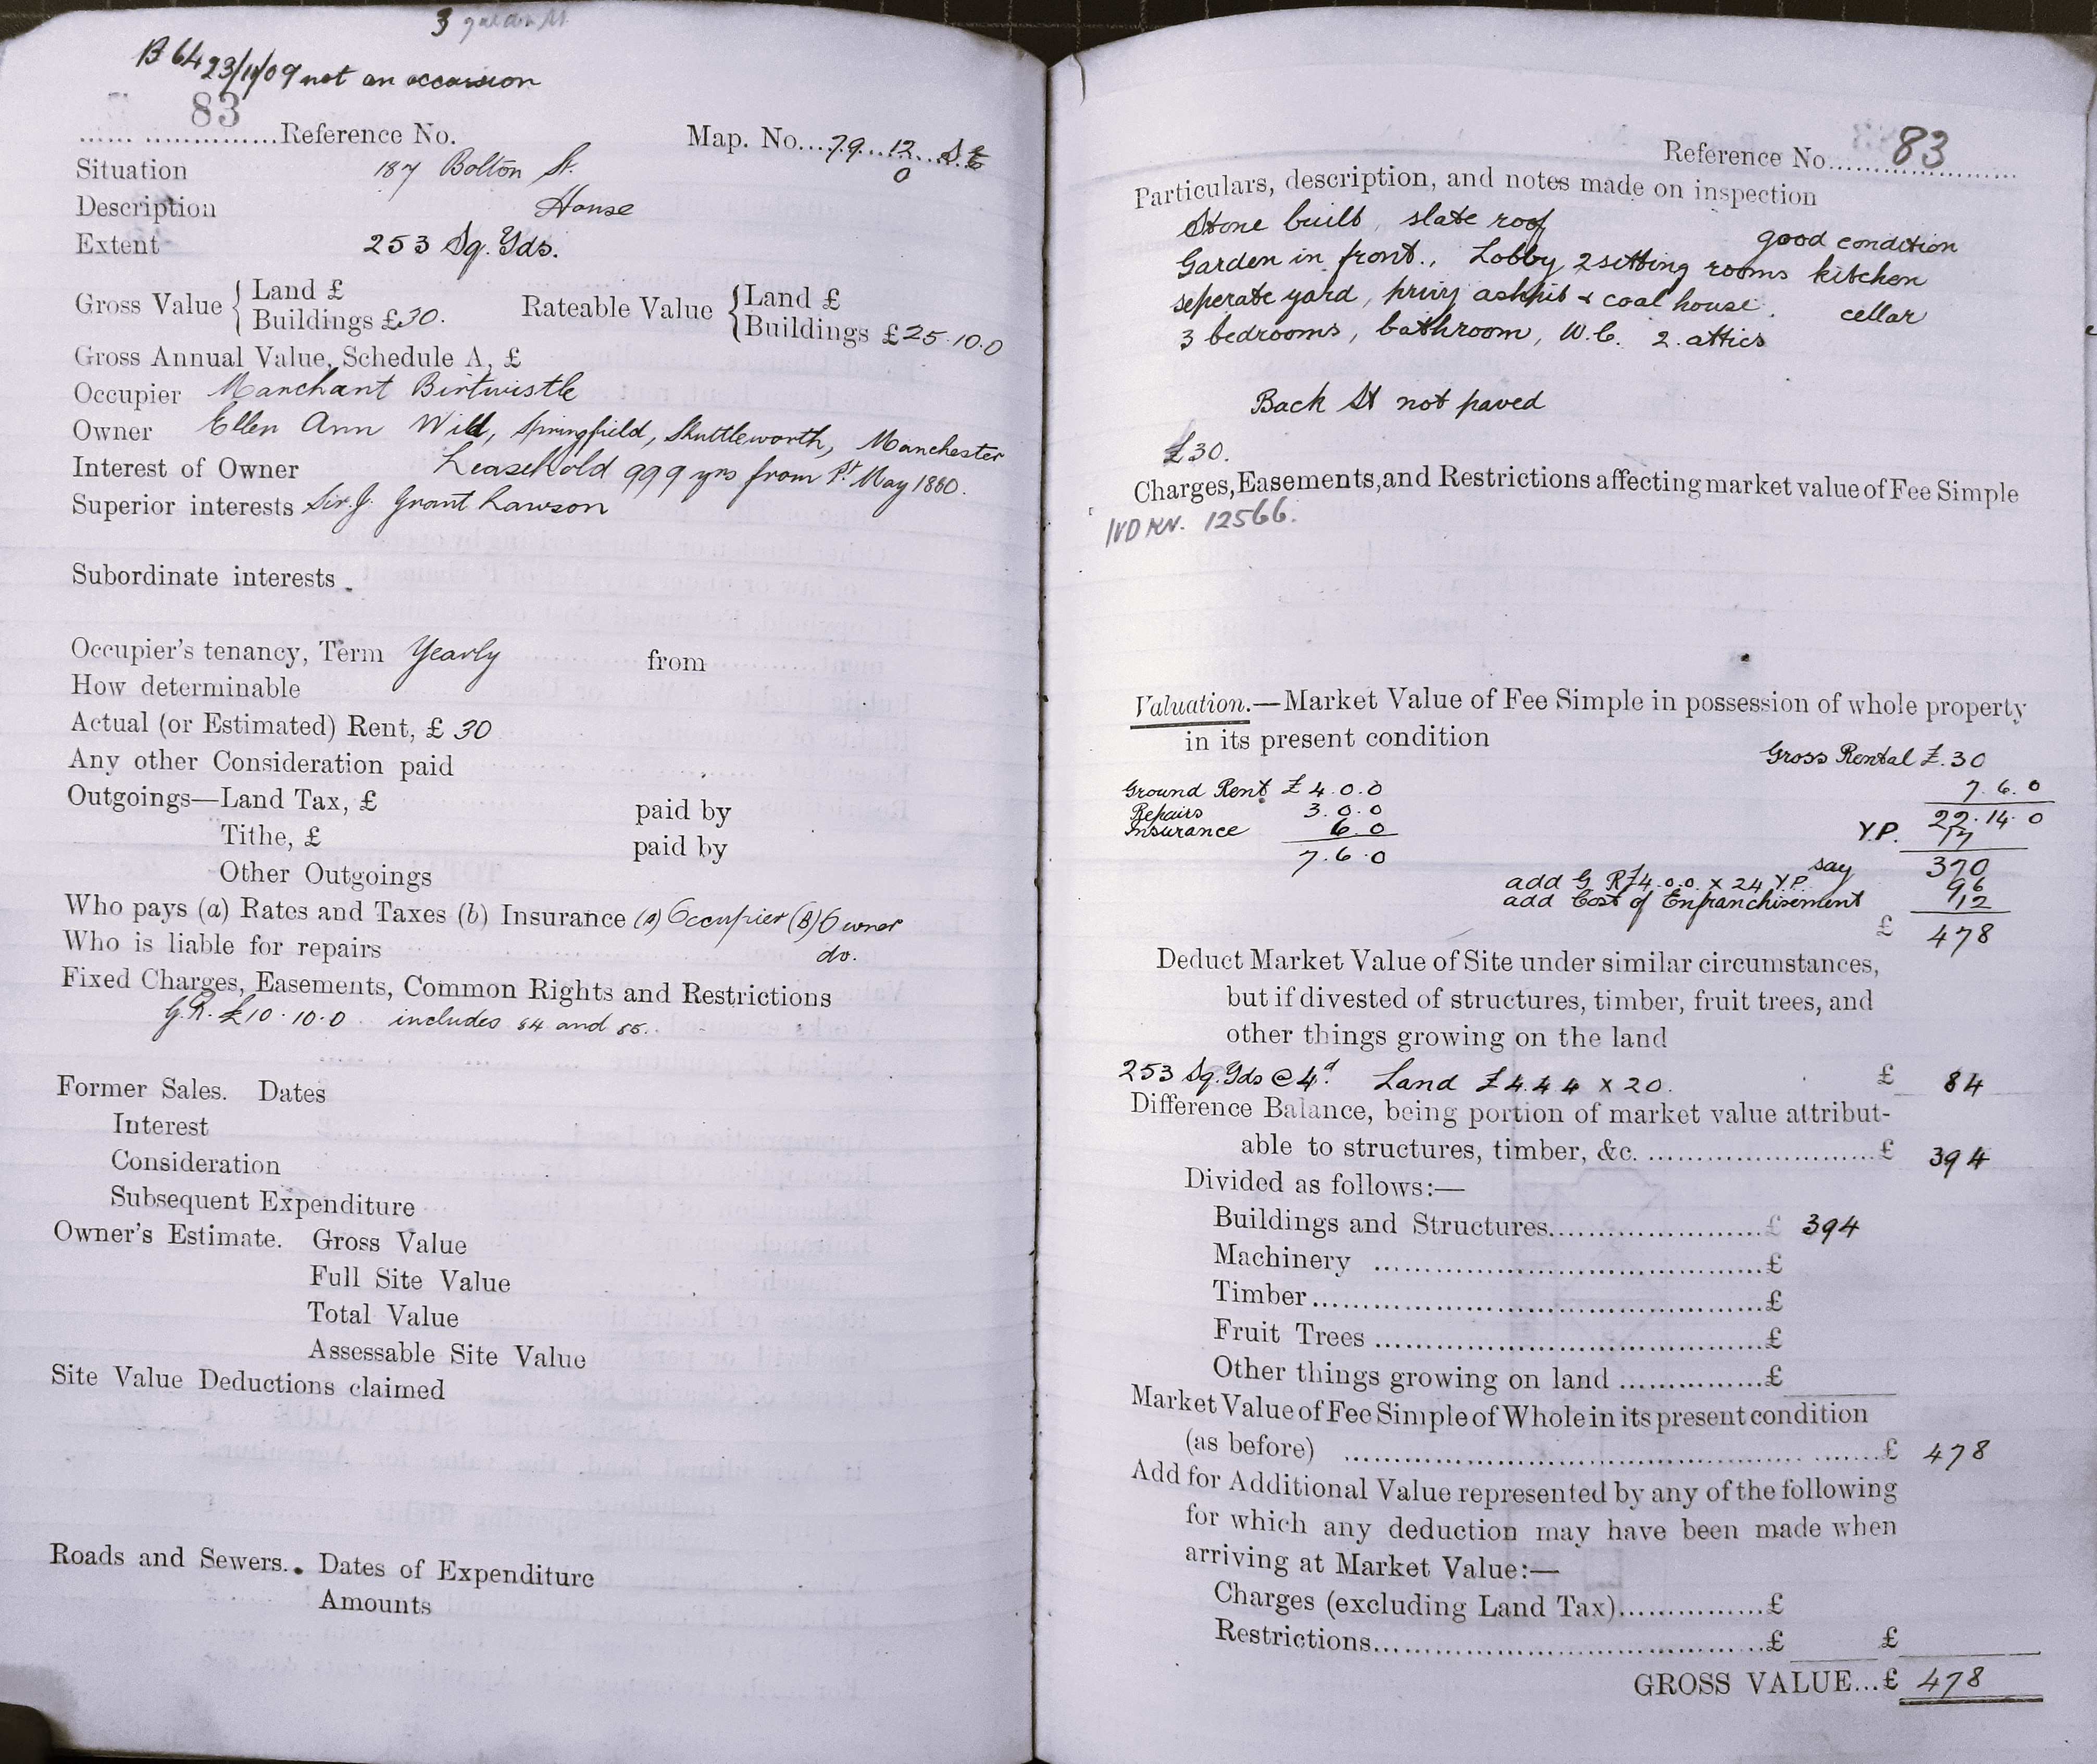 3 garden St.
B 64 23/11/09 not an occasion
83
Reference No. Map. No. 79 12 S.E
0
Situation 187 Bolton St.
Description House
Extent 253 Sq. Yds.
Gross Value { Land £
Buildings £30.
Rateable Value { Land £
Buildings £25.10.0
Gross Annual Value, Schedule A, £
Occupier Marchant Birtwistle
Owner Ellen Ann Wild, Springfield, Shuttleworth, Manchester
Interest of Owner Leasehold 999 yrs from 1st May 1880.
Superior interests Sir J. Grant Lawson
Subordinate interests
Occupier's tenancy, Term Yearly from
How determinable
Actual (or Estimated) Rent, £ 30
Any other Consideration paid
Outgoings—Land Tax, £ paid by
Tithe, £ paid by
Other Outgoings
Who pays (a) Rates and Taxes (b) Insurance (a) Occupier (B) Owner
Who is liable for repairs do.
Fixed Charges, Easements, Common Rights and Restrictions
G.R. £10.10.0 includes 84 and 85.
Former Sales. Dates
Interest
Consideration
Subsequent Expenditure
Owner's Estimate. Gross Value
Full Site Value
Total Value
Assessable Site Value
Site Value Deductions claimed
Roads and Sewers. Dates of Expenditure
Amounts
Reference No. 83
Particulars, description, and notes made on inspection
Stone built, slate roof good condition
Garden in front., Lobby, 2 sitting rooms kitchen
seperate yard, privy ashpit & coal house. cellar
3 bedrooms, bathroom, W.C. 2. attics
Back St not paved
£30.
Charges, Easements, and Restrictions affecting market value of Fee Simple
12566.
Valuation.—Market Value of Fee Simple in possession of whole property
in its present condition
Gross Rental £.30
Ground Rent £ 4.0.0 7.6.0
Repairs 3.0.0 22.14.0
Insurance 6.0 Y.P. 17
7.6.0 say 370
add G R £4.0.0. x 24 Y.P. 96
add Cost of Enfranchisement 12
£ 478
Deduct Market Value of Site under similar circumstances,
but if divested of structures, timber, fruit trees, and
other things growing on the land
253 Sq. Yds @ 4d. Land £4.4.4 x 20. £ 84
Difference Balance, being portion of market value attribut-
able to structures, timber, &c. £ 394
Divided as follows:—
Buildings and Structures £ 394
Machinery £
Timber £
Fruit Trees £
Other things growing on land £
Market Value of Fee Simple of Whole in its present condition
(as before) £ 478
Add for Additional Value represented by any of the following
for which any deduction may have been made when
arriving at Market Value:—
Charges (excluding Land Tax) £
Restrictions £ £
GROSS VALUE...£ 478